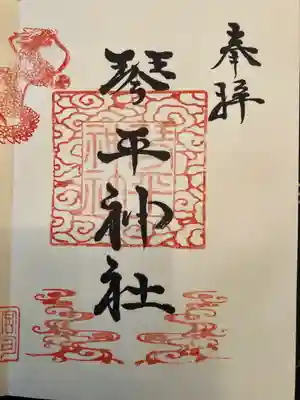 奉拝
琴平神社